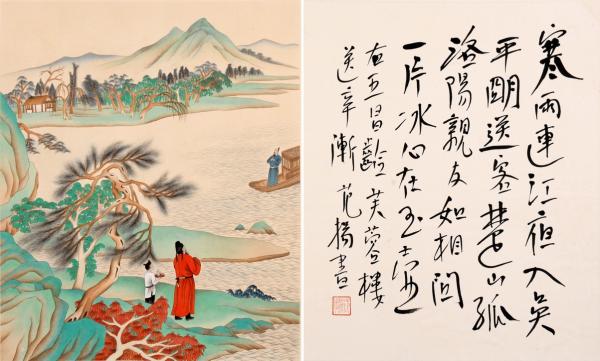 寒雨連江夜入吴
平明送客楚山孤
洛陽親友如相問
一片冰心在玉壺
右王昌齡芙蓉樓
送辛漸 范揚書